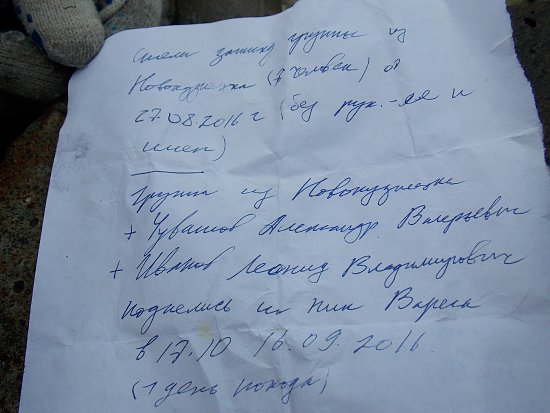 Сняли записку группы из
Новокузнецка (7 человек) от
27.08.2016 г (без рук.-ля и
имен)
Группа из Новокузнецка
+ Чувашов Александр Валерьевич
+ Иванов Леонид Владимирович
поднялись на пик Вареса
в 17.10 16.09.2016
(1 день похода)